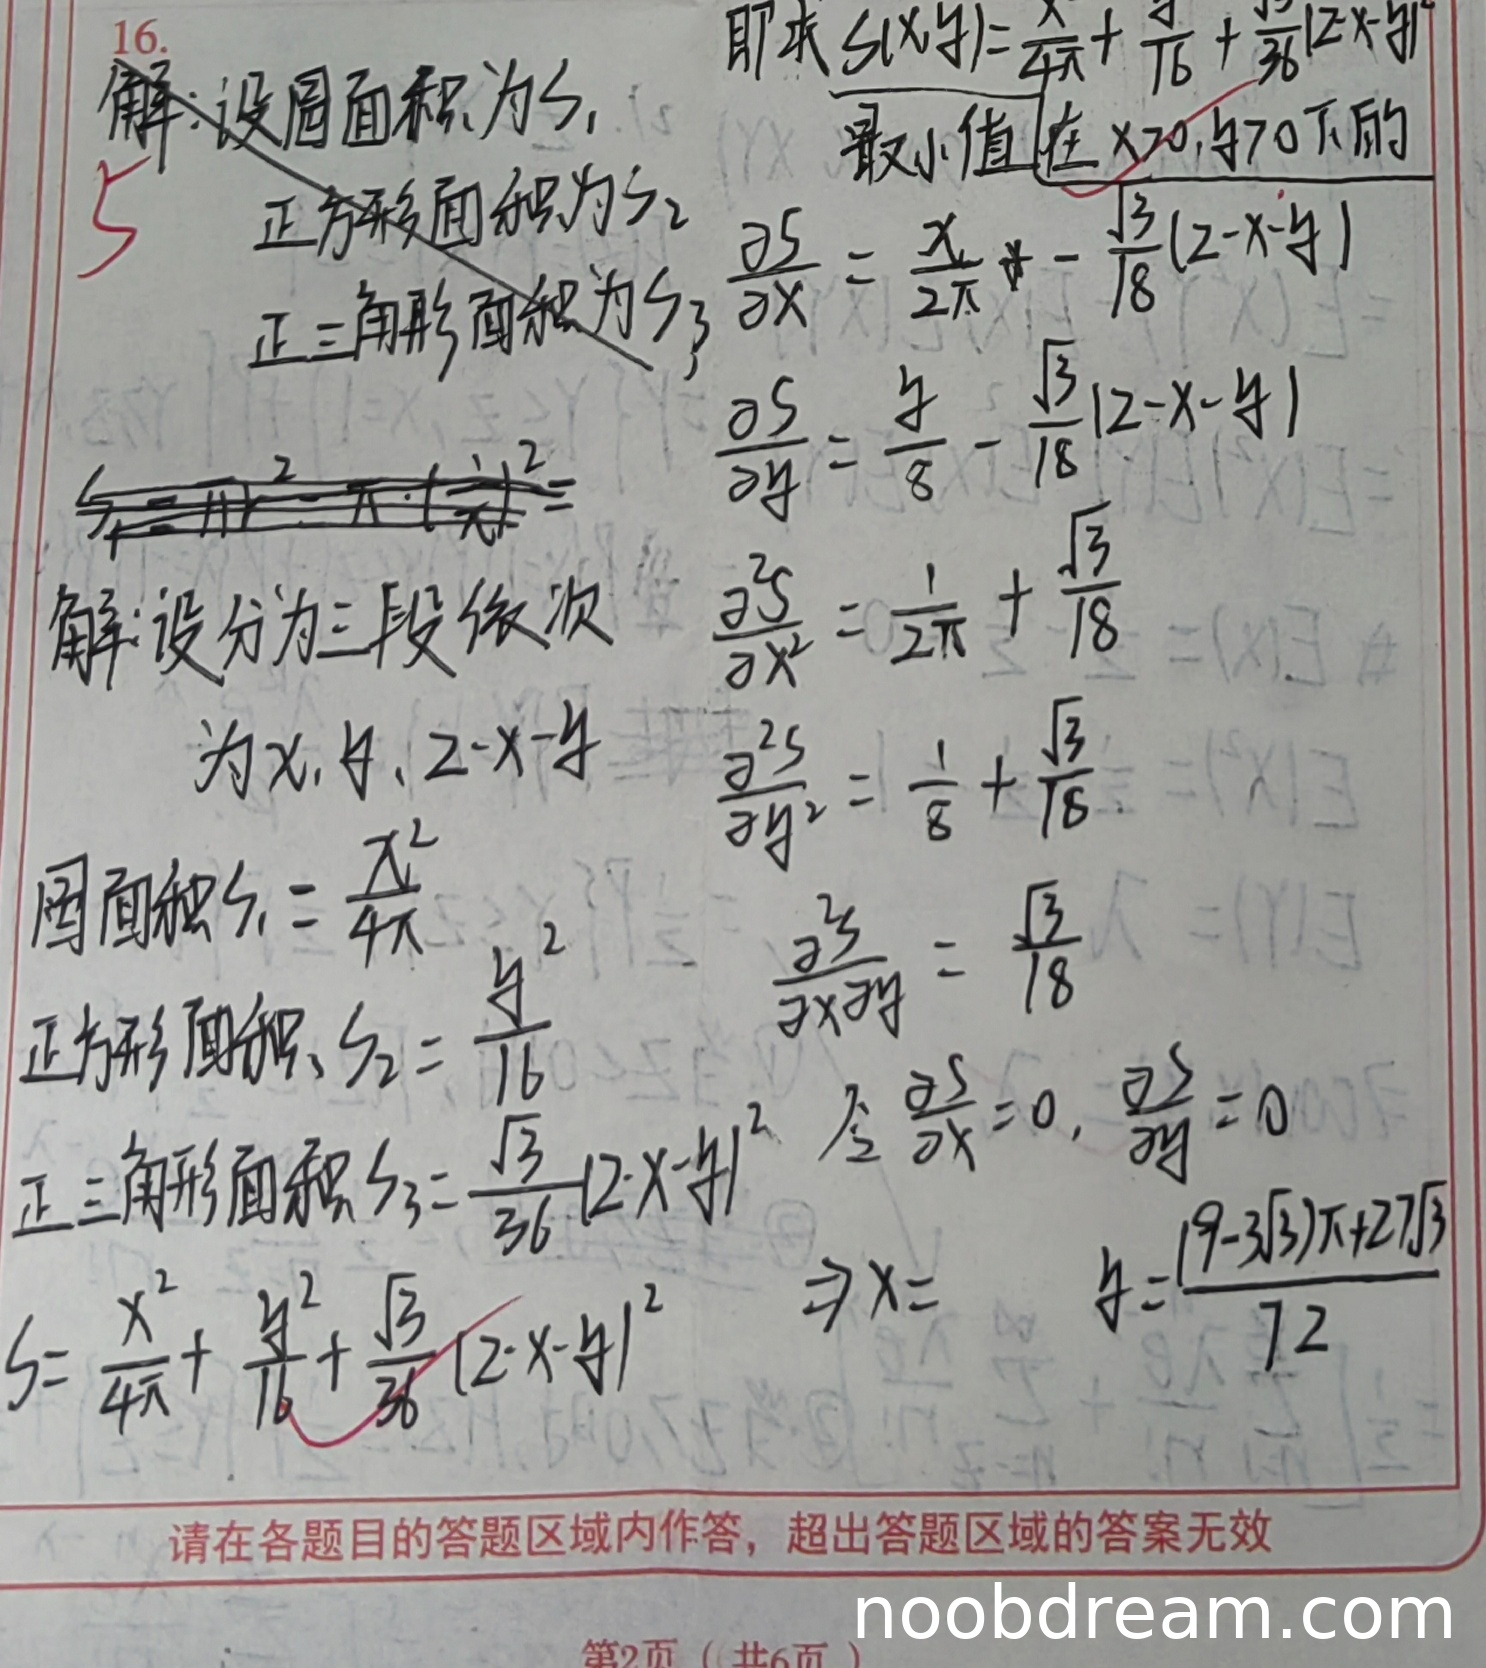 16.
解:设圆面积为S₁
5
正方形面积为S₂
正三角形面积为S₃
解:设分为三段依次
为x、y、2-x-y
圆面积S₁ = x²/4π
正方形面积S₂ = y²/16
正三角形面积S₃ = √3/36 (2-x-y)²
S = x²/4π + y²/16 + √3/36 (2-x-y)²
即求 S(x,y) = x²/4π + y²/16 + √3/36 (2-x-y)²
最小值 在 x>0, y>0 下的
∂S/∂x = x/2π - √3/18 (2-x-y)
∂S/∂y = y/8 - √3/18 (2-x-y)
∂²S/∂x² = 1/2π + √3/18
∂²S/∂y² = 1/8 + √3/18
∂²S/∂x∂y = √3/18
令 ∂S/∂x = 0, ∂S/∂y = 0
⇒ x = y = (9-3√3)π+27√3/72
请在各题目的答题区域内作答，超出答题区域的答案无效
noobdream.com
第2页（共6页）